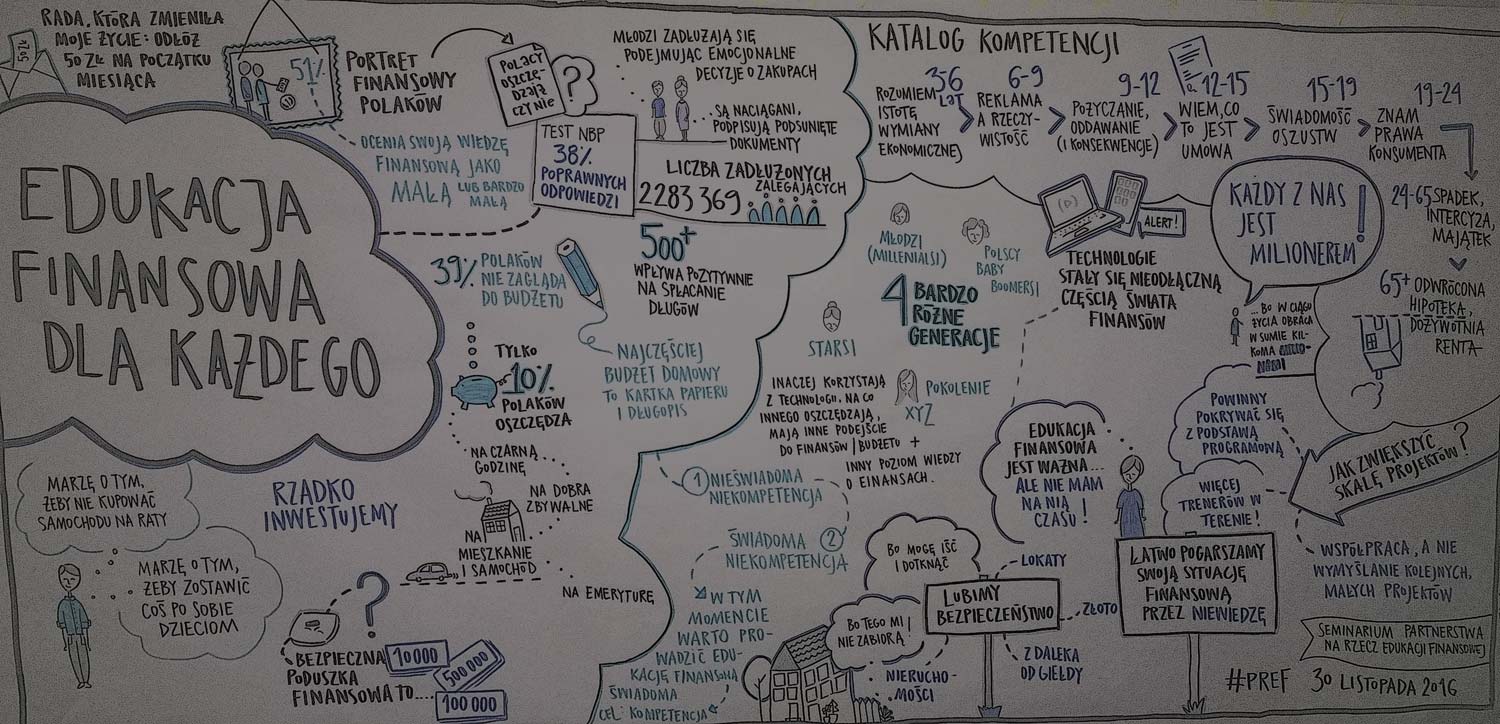 RADA, KTÓRA ZMIENIŁA
MOJE ŻYCIE: ODŁÓŻ
50 ZŁ NA POCZĄTKU
MIESIĄCA
50 ZŁ
EDUKACJA
FINANSOWA
DLA KAŻDEGO
51%
PORTRET
FINANSOWY
POLAKÓW
OCENIA SWOJĄ WIEDZĘ
FINANSOWĄ JAKO
MAŁĄ LUB BARDZO
MAŁĄ
POLACY
OSZCZĘ-
DZAJĄ
CZY NIE
?
TEST NBP
38%
POPRAWNYCH
ODPOWIEDZI
MŁODZI ZADŁUŻAJĄ SIĘ
PODEJMUJĄC EMOCJONALNE
DECYZJE O ZAKUPACH
...SĄ NACIĄGANI,
PODPISUJĄ PODSUNIĘTE
DOKUMENTY
LICZBA ZADŁUŻONYCH
ZALEGAJĄCYCH
2283369
500+
WPŁYWA POZYTYWNIE
NA SPŁACANIE
DŁUGÓW
39% POLAKÓW
NIE ZAGLĄDA
DO BUDŻETU
NAJCZĘŚCIEJ
BUDŻET DOMOWY
TO KARTKA PAPIERU
I DŁUGOPIS
TYLKO
10%
POLAKÓW
OSZCZĘDZA
NA CZARNĄ
GODZINĘ
NA DOBRA
ZBYWALNE
NA
MIESZKANIE
I SAMOCHÓD
NA EMERYTURĘ
MARZĘ O TYM,
ŻEBY NIE KUPOWAĆ
SAMOCHODU NA RATY
MARZĘ O TYM,
ŻEBY ZOSTAWIĆ
COŚ PO SOBIE
DZIECIOM
RZADKO
INWESTUJEMY
?
BEZPIECZNA
PODUSZKA
FINANSOWA TO....
10 000
500 000
100 000
KATALOG KOMPETENCJI
3-6
LAT
ROZUMIEM
ISTOTĘ
WYMIANY
EKONOMICZNEJ
6-9
REKLAMA
A RZECZY-
WISTOŚĆ
9-12
POŻYCZANIE,
ODDAWANIE
(I KONSEKWENCJE)
12-15
WIEM, CO
TO JEST
UMOWA
15-19
ŚWIADOMOŚĆ
OSZUSTW
19-24
ZNAM
PRAWA
KONSUMENTA
24-65 SPADEK,
INTERCYZA,
MAJĄTEK
65+ ODWRÓCONA
HIPOTEKA,
DOŻYWOTNIA
RENTA
KAŻDY Z NAS
JEST
MILIONEREM!
... BO W CIĄGU
ŻYCIA OBRACA
W SUMIE KIL-
KOMA MILIO-
NAMI
ALERT!
TECHNOLOGIE
STAŁY SIĘ NIEODŁĄCZNĄ
CZĘŚCIĄ ŚWIATA
FINANSÓW
MŁODZI
(MILLENIALSI)
POLSCY
BABY
BOOMERSI
4 BARDZO
RÓŻNE
GENERACJE
STARSI
POKOLENIE
XYZ
INACZEJ KORZYSTAJĄ
Z TECHNOLOGII, NA CO
INNEGO OSZCZĘDZAJĄ,
MAJĄ INNE PODEJŚCIE
DO FINANSÓW / BUDŻETU +
INNY POZIOM WIEDZY
O FINANSACH.
1 NIEŚWIADOMA
NIEKOMPETENCJA
ŚWIADOMA 2
NIEKOMPETENCJA
W TYM
MOMENCIE
WARTO PRO-
WADZIĆ EDU-
KACJĘ FINANSOWĄ
ŚWIADOMA
CEL: KOMPETENCJA
EDUKACJA
FINANSOWA
JEST WAŻNA...
ALE NIE MAM
NA NIĄ
CZASU!
POWINNY
POKRYWAĆ SIĘ
Z PODSTAWĄ
PROGRAMOWĄ
WIĘCEJ
TRENERÓW W
TERENIE!
JAK ZWIĘKSZYĆ
SKALĘ PROJEKTÓW?
WSPÓŁPRACA, A NIE
WYMYŚLANIE KOLEJNYCH,
MAŁYCH PROJEKTÓW
BO MOGĘ IŚĆ
I DOTKNĄĆ
BO TEGO MI
NIE ZABIORĄ!
LUBIMY
BEZPIECZEŃSTWO
LOKATY
ZŁOTO
Z DALEKA
OD GIEŁDY
NIERUCHO-
MOŚCI
ŁATWO POGARSZAMY
SWOJĄ SYTUACJĘ
FINANSOWĄ
PRZEZ NIEWIEDZĘ
SEMINARIUM PARTNERSTWA
NA RZECZ EDUKACJI FINANSOWEJ
#PREF 30 LISTOPADA 2016